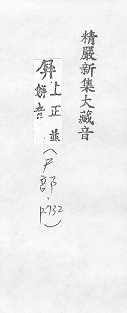 精嚴新集大藏音
上正並
餅音
(尸部,p.732)